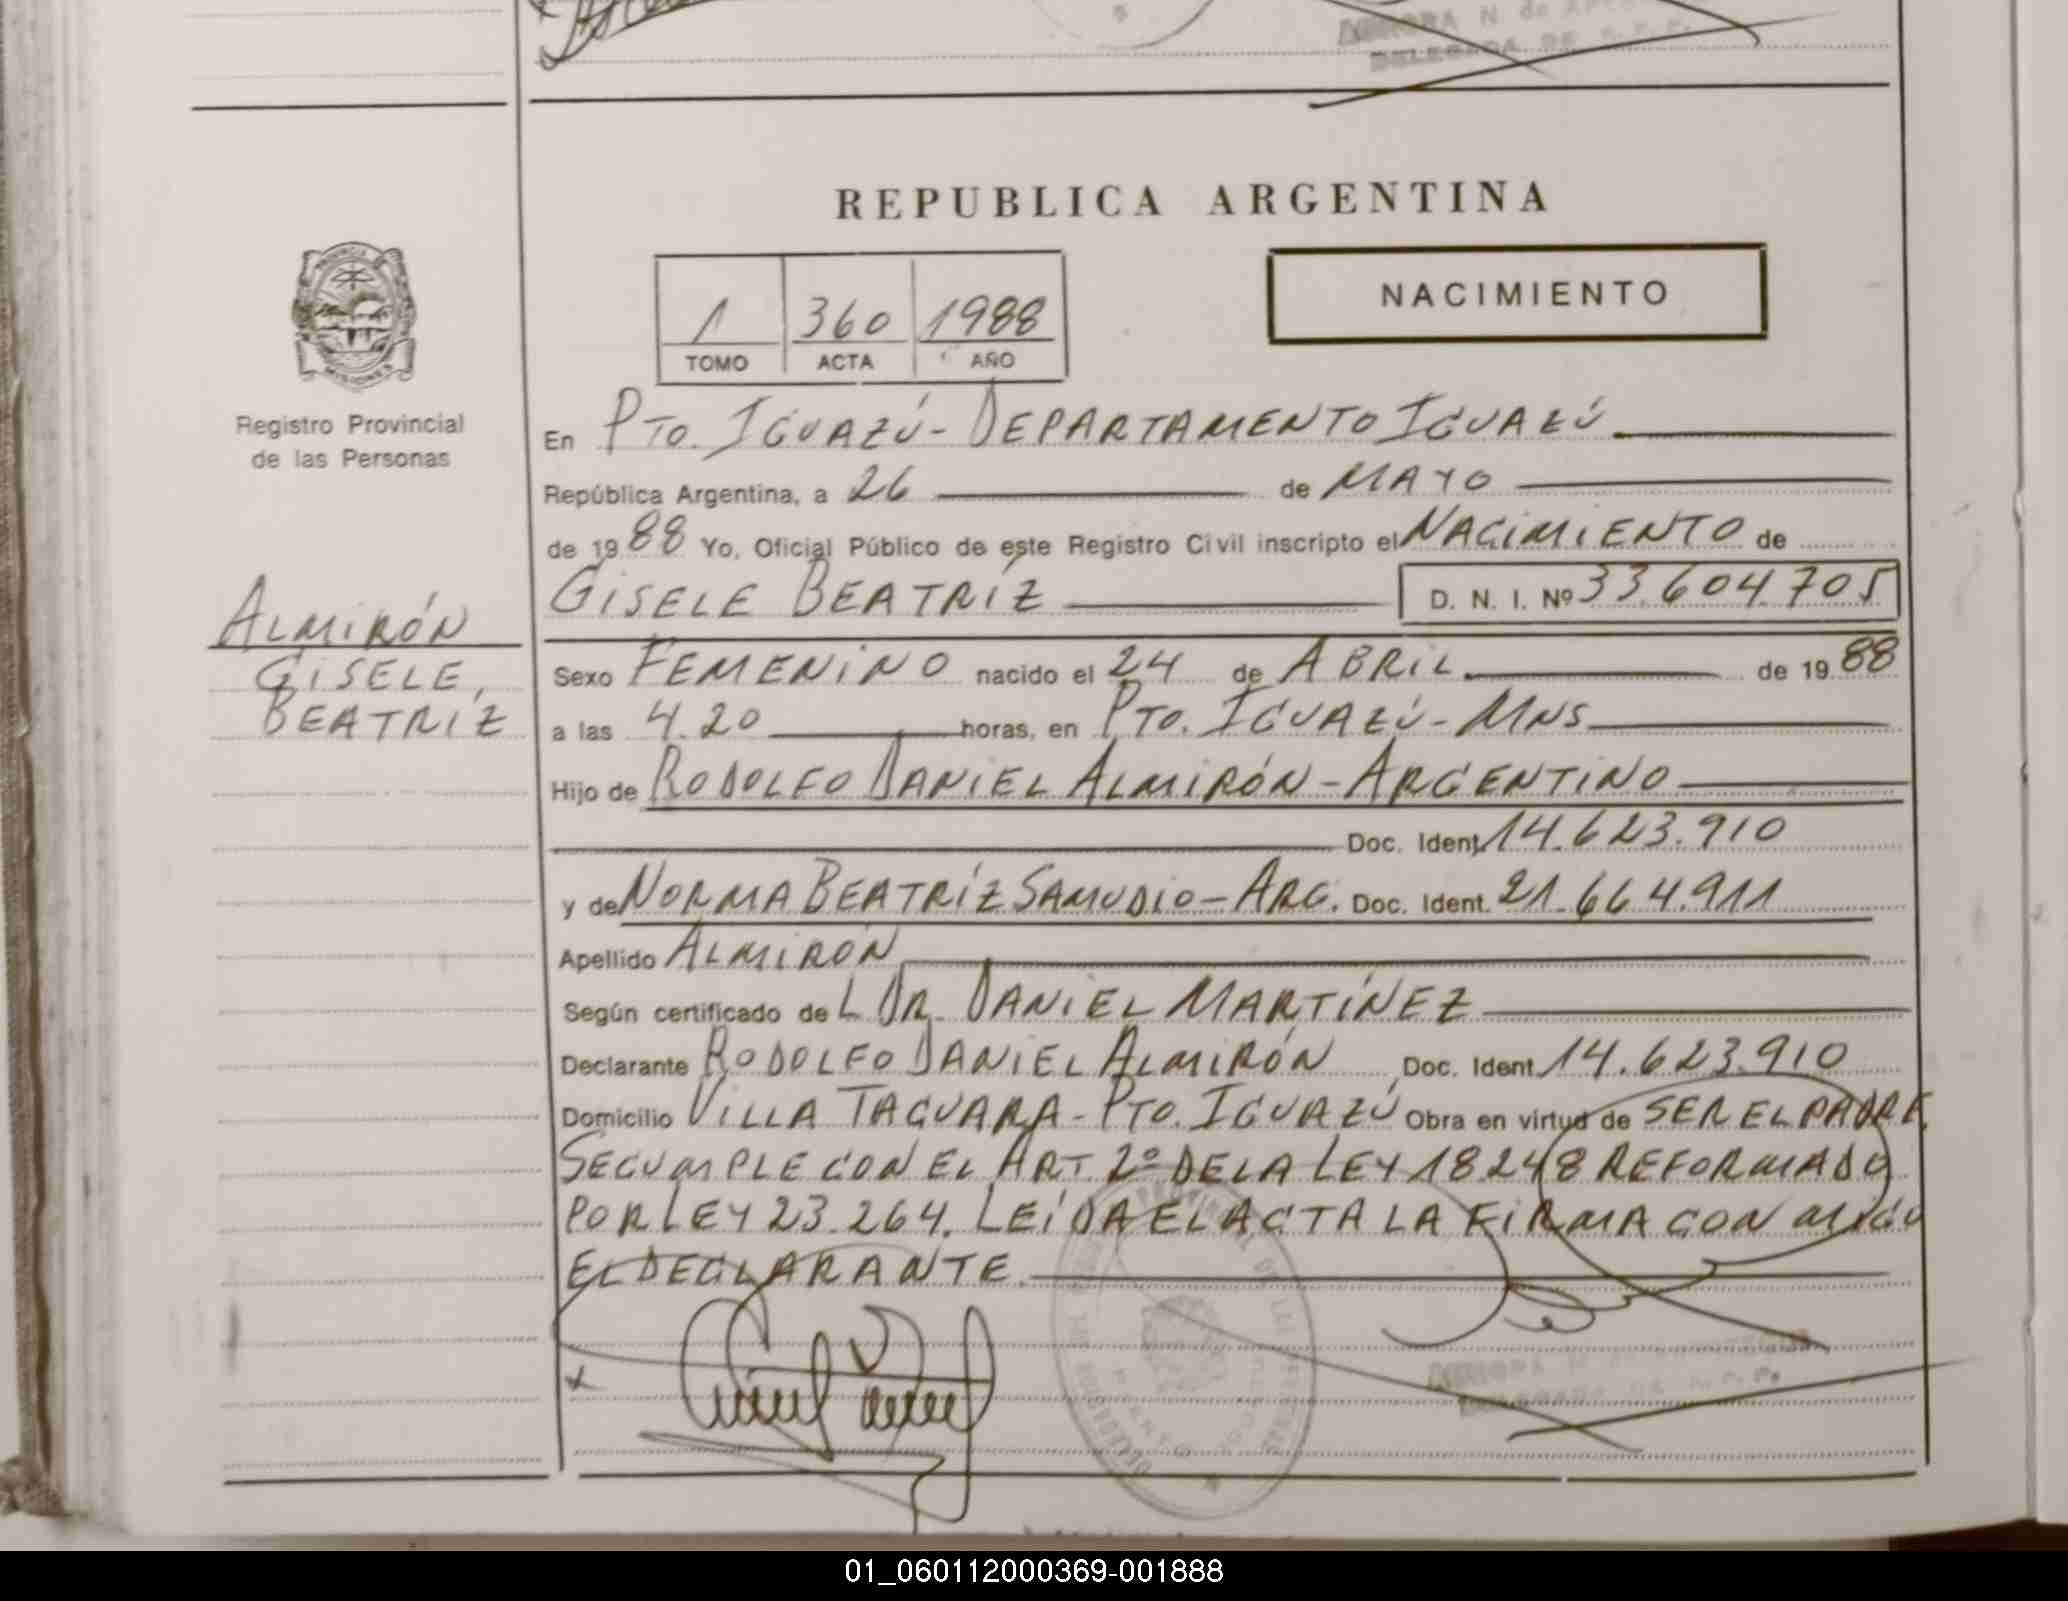 REPUBLICA ARGENTINA
NACIMIENTO
1 360 1988
TOMO ACTA AÑO
PROVINCIA DE MISIONES
Registro Provincial
de las Personas
ALMIRÓN
GISELE,
BEATRÍZ
En PTO. IGUAZÚ - DEPARTAMENTO IGUAZÚ
República Argentina, a 26 de MAYO
de 1988 Yo, Oficial Público de este Registro Civil inscripto el NACIMIENTO de
GISELE BEATRÍZ D. N. I. Nº 33.604.705
Sexo FEMENINO nacido el 24 de ABRIL de 1988
a las 4.20 horas, en PTO. IGUAZÚ - MNS
Hijo de RODOLFO DANIEL ALMIRÓN - ARGENTINO
Doc. Ident. 14.623.910
y de NORMA BEATRÍZ SAMUDIO - ARG. Doc. Ident. 21.664.911
Apellido ALMIRÓN
Según certificado de L DR. DANIEL MARTÍNEZ
Declarante RODOLFO DANIEL ALMIRÓN Doc. Ident 14.623.910
Domicilio VILLA TACUARA - PTO. IGUAZÚ Obra en virtud de SER EL PADRE
SE CUMPLE CON EL ART 2º DE LA LEY 18248 REFORMADO
POR LEY 23.264. LEÍDA EL ACTA LA FIRMA CON MIGO
EL DECLARANTE.
DELEGADA DE R.P.P.
01_060112000369-001888